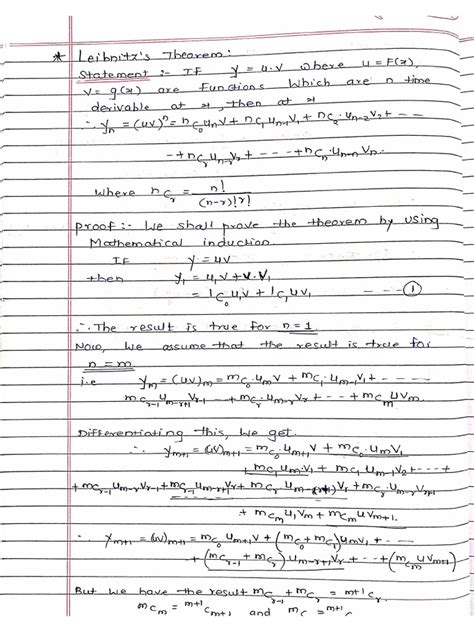 * Leibnitz's Theorem:
Statement :- IF y = u.v where u = F(x),
v = g(x) are functions which are n time
derivable at x, then at x
∴ yₙ = (uv)ⁿ = nC₀uₙv + nC₁uₙ₋₁v₁ + nC₂.uₙ₋₂v₂ + ---
--+ nCᵣuₙ₋ᵣvᵣ + ---- + nCₙ.uₙ₋ₙvₙ.
where nCᵣ = n!/(n-r)!r!
proof :- We shall prove the theorem by using
Mathematical induction
IF y = uv
then y₁ = u₁v + u.v₁
= 1C₀u₁v + 1C₁uv₁ --- ①
∴ The result is true for n = 1.
Now, We assume that the result is true for
n = m
i.e yₘ = (uv)ₘ = mC₀.uₘv + mC₁.uₘ₋₁v₁ + -- ---
mCᵣ₋₁uₘ₋ᵣ₊₁vᵣ₋₁ --- + mCᵣ.uₘ₋ᵣvᵣ + -- + mCₘuvₘ.
Differentiating this, We get.
∴ yₘ₊₁ = (uv)ₘ₊₁ = mC₀.uₘ₊₁v + mC₀.uₘv₁
mC₁uₘ.v₁ + mC₁uₘ₋₁v₂ + --- +
+ mCᵣ₋₁uₘ₋ᵣvᵣ₋₁ + mCᵣ₋₁uₘ₋ᵣ₊₁vᵣ + mCᵣuₘ₋ v₁ + mCᵣ.uₘ₋ᵣvᵣ₊₁
+ mCₘu₁vₘ + mCₘuvₘ₊₁.
∴ yₘ₊₁ = (uv)ₘ₊₁ = mC₀uₘ₊₁v + (mC₀ + mC₁)uₘv₁ + ---
+ (mCᵣ₋₁ + mCᵣ)uₘ₋ᵣ₊₁vᵣ + --- + (mCₘuvₘ₊₁)
But we have the result mCᵣ₋₁ + mCᵣ = m+1Cᵣ.
mCₘ = m+1Cₘ₊₁ and mC = m+1C